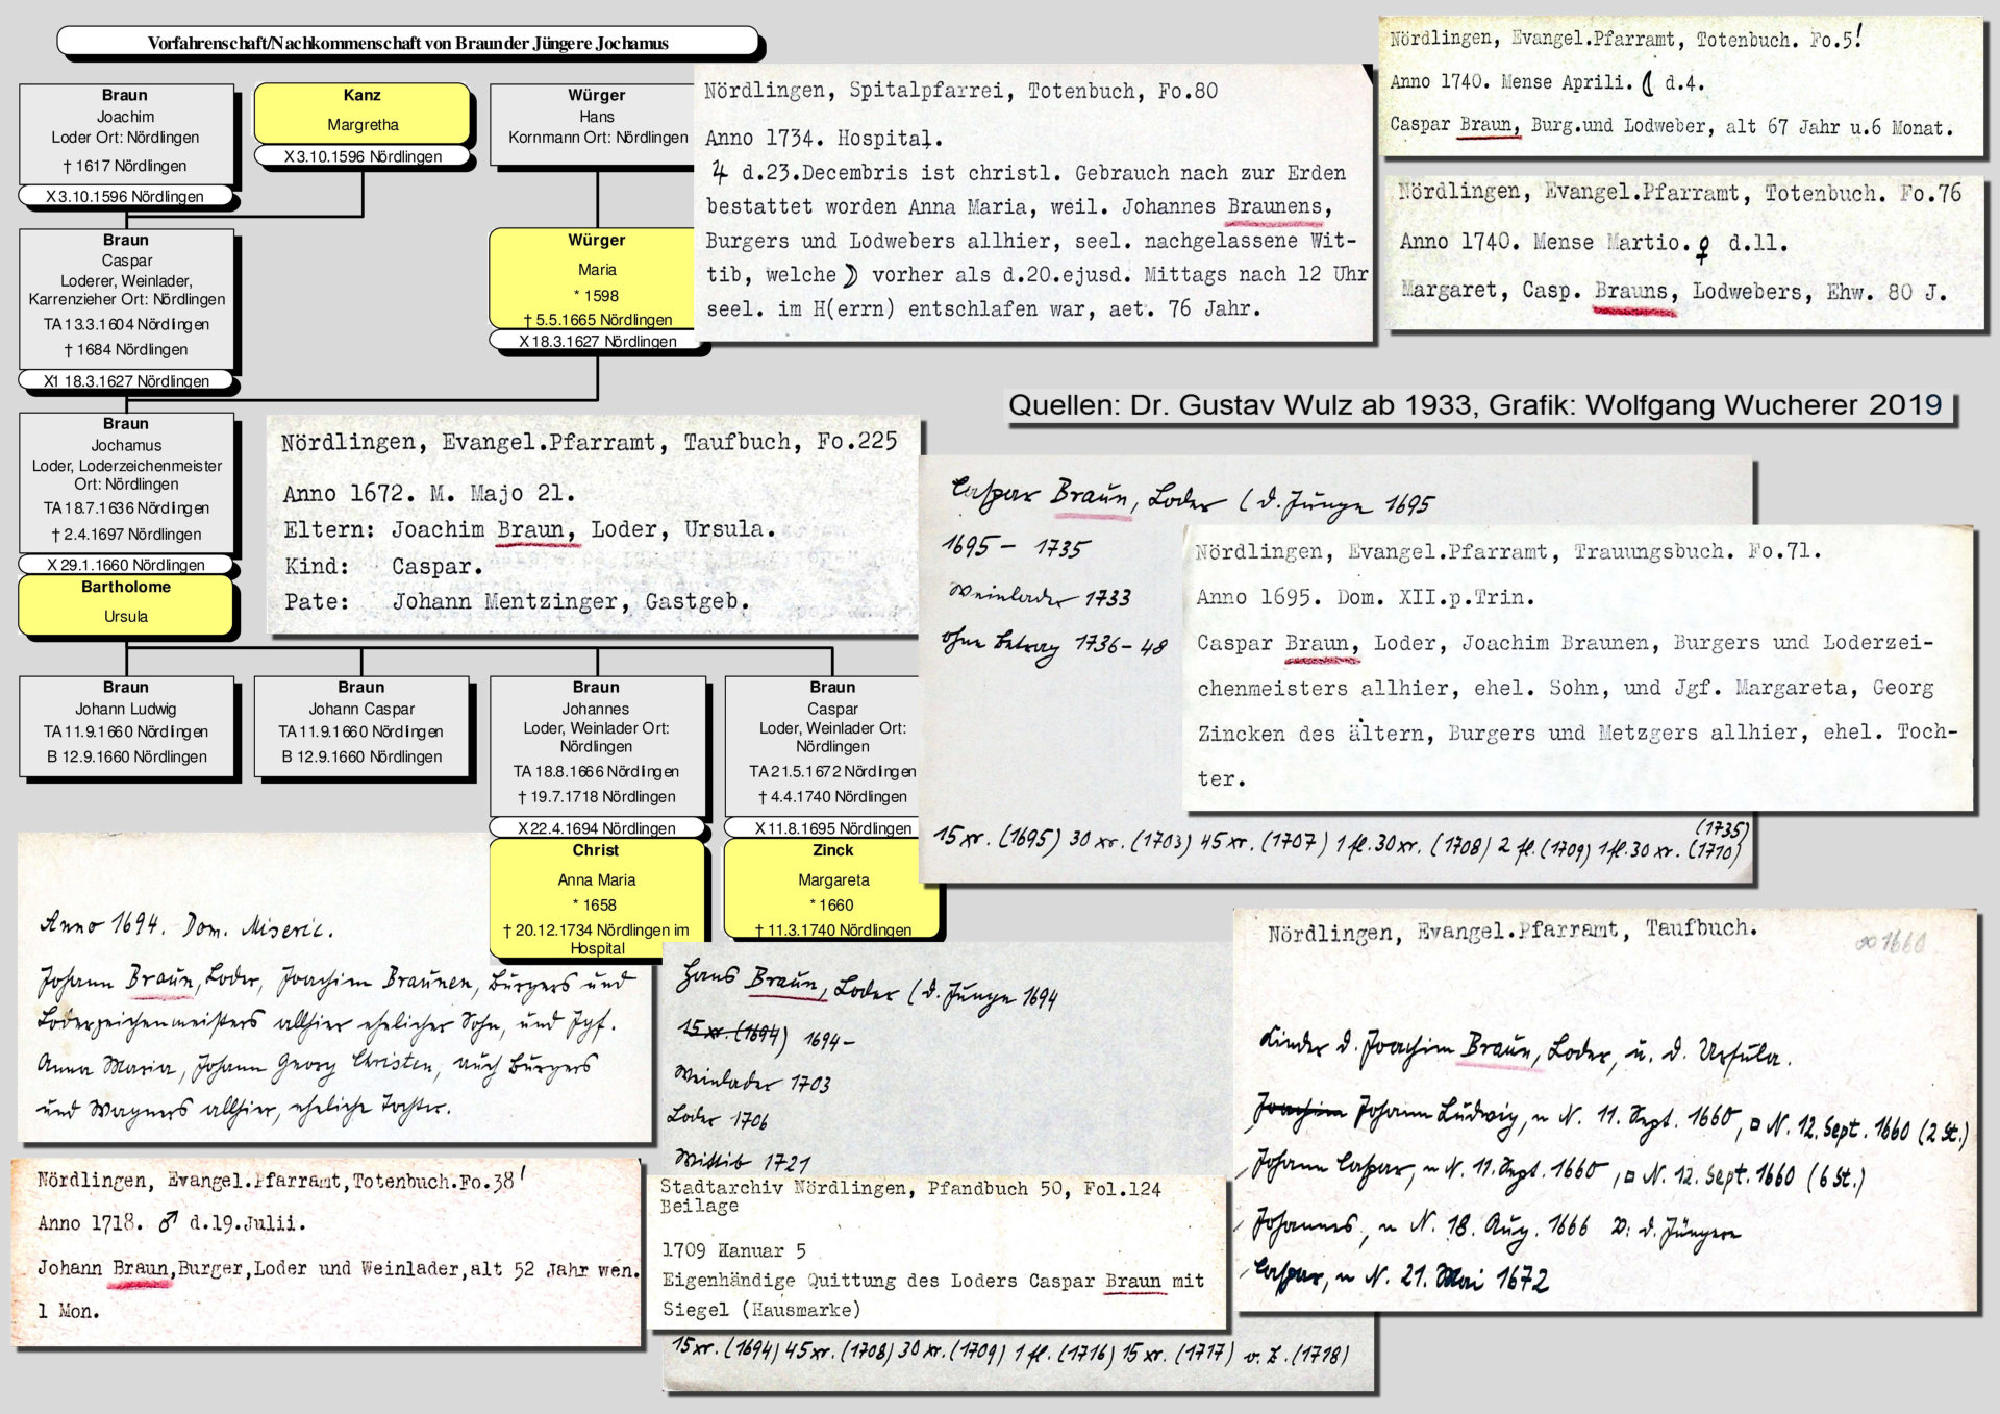 Vorfahrenschaft/Nachkommenschaft von Braun der Jüngere Jochamus
Braun
Joachim
Loder Ort: Nördlingen
† 1617 Nördlingen
X 3.10.1596 Nördlingen
Kanz
Margretha
X 3.10.1596 Nördlingen
Würger
Hans
Kornmann Ort: Nördlingen
Braun
Caspar
Loderer, Weinlader,
Karrenzieher Ort: Nördlingen
TA 13.3.1604 Nördlingen
† 1684 Nördlingen
X1 18.3.1627 Nördlingen
Würger
Maria
* 1598
† 5.5.1665 Nördlingen
X 18.3.1627 Nördlingen
Braun
Jochamus
Loder, Loderzeichenmeister
Ort: Nördlingen
TA 18.7.1636 Nördlingen
† 2.4.1697 Nördlingen
X 29.1.1660 Nördlingen
Bartholome
Ursula
Braun
Johann Ludwig
TA 11.9.1660 Nördlingen
B 12.9.1660 Nördlingen
Braun
Johann Caspar
TA 11.9.1660 Nördlingen
B 12.9.1660 Nördlingen
Braun
Johannes
Loder, Weinlader Ort:
Nördlingen
TA 18.8.1666 Nördlingen
† 19.7.1718 Nördlingen
X 22.4.1694 Nördlingen
Christ
Anna Maria
* 1658
† 20.12.1734 Nördlingen im
Hospital
Braun
Caspar
Loder, Weinlader Ort:
Nördlingen
TA 21.5.1672 Nördlingen
† 4.4.1740 Nördlingen
X 11.8.1695 Nördlingen
Zinck
Margareta
* 1660
† 11.3.1740 Nördlingen
Nördlingen, Spitalpfarrei, Totenbuch, Fo.80
Anno 1734. Hospital.
♃ d.23.Decembris ist christl. Gebrauch nach zur Erden
bestattet worden Anna Maria, weil. Johannes Braunens,
Burgers und Lodwebers allhier, seel. nachgelassene Wit-
tib, welche ☽ vorher als d.20.ejusd. Mittags nach 12 Uhr
seel. im H(errn) entschlafen war, aet. 76 Jahr.
Nördlingen, Evangel.Pfarramt, Totenbuch. Fo.5!
Anno 1740. Mense Aprili. ☾ d.4.
Caspar Braun, Burg.und Lodweber, alt 67 Jahr u.6 Monat.
Nördlingen, Evangel.Pfarramt, Totenbuch. Fo.76
Anno 1740. Mense Martio. ♀ d.11.
Margaret, Casp. Brauns, Lodwebers, Ehw. 80 J.
Quellen: Dr. Gustav Wulz ab 1933, Grafik: Wolfgang Wucherer 2019
Nördlingen, Evangel.Pfarramt, Taufbuch, Fo.225
Anno 1672. M. Majo 21.
Eltern: Joachim Braun, Loder, Ursula.
Kind: Caspar.
Pate: Johann Mentzinger, Gastgeb.
Caspar Braun, Loder (d. Junge 1695
1695 - 1735
Weinlader 1733
ohne Betrag 1736-48
15 xr. (1695) 30 xr. (1703) 45 xr. (1707) 1 fl. 30 xr. (1708) 2 fl. (1709) 1 fl. 30 xr. (1710)
(1735)
Nördlingen, Evangel.Pfarramt, Trauungsbuch. Fo.71.
Anno 1695. Dom. XII.p.Trin.
Caspar Braun, Loder, Joachim Braunen, Burgers und Loderzei-
chenmeisters allhier, ehel. Sohn, und Jgf. Margareta, Georg
Zincken des ältern, Burgers und Metzgers allhier, ehel. Toch-
ter.
Anno 1694. Dom. Miseric.
Johann Braun, Loder, Joachim Braunen, Burgers und
Loderzeichenmeisters allhier ehelicher Sohn, und Jgf.
Anna Maria, Johann Georg Christen, auch Burgers
und Wagners allhier, eheliche Tochter.
Hans Braun, Loder (d. Junge 1694
15 xr. (1694) 1694-
Weinlader 1703
Loder 1706
Wittib 1721
15 xr. (1694) 45 xr. (1708) 30 xr. (1709) 1 fl. (1716) 15 xr. (1717) v. Z. (1718)
Nördlingen, Evangel.Pfarramt,Totenbuch.Fo.38'
Anno 1718. ♂ d.19.Julii.
Johann Braun,Burger,Loder und Weinlader,alt 52 Jahr wen.
1 Mon.
Stadtarchiv Nördlingen, Pfandbuch 50, Fol.124
Beilage
1709 Hanuar 5
Eigenhändige Quittung des Loders Caspar Braun mit
Siegel (Hausmarke)
Nördlingen, Evangel.Pfarramt, Taufbuch.
∞ 1660
Kinder d. Joachim Braun, Loder, u. d. Ursula.
Joachim Johann Ludwig, n N. 11. Sept. 1660, □ N. 12. Sept. 1660 (2 St.)
Johann Caspar, n N. 11. Sept. 1660, □ N. 12. Sept. 1660 (6 St.)
Johannes, n N. 18. Aug. 1666 D: d. Jüngere
Caspar, n N. 21. Mai 1672